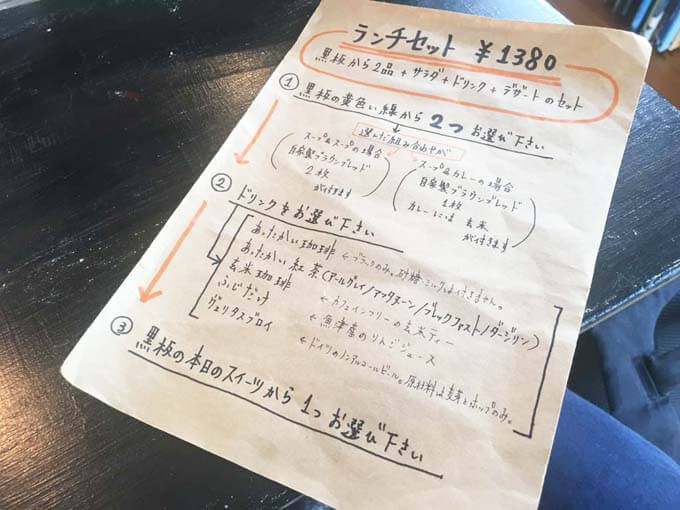 ランチセット ¥1380
黒板から2品+サラダ+ドリンク+デザートのセット
① 黒板の黄色い線から 2つ お選び下さい
選んだ組み合わせが
(スープ&スープの場合
自家製ブラウンブレッド
2枚
が付きます)
(スープ&カレーの場合
自家製ブラウンブレッド
1枚
カレーには 玄米
が付きます)
② ドリンクをお選び下さい
あったかい珈琲 ←ブラックのみ。砂糖・ミルクは付きません。
あったかい紅茶(アールグレイ/アフタヌーン/ブレックファスト/ダージリン)
玄米珈琲 ←カフェインフリーの玄米ティー
ふじだけ ←魚津産のりんごジュース
ヴェリタスブロイ ←ドイツのノンアルコールビール。原材料は麦芽とホップのみ。
③ 黒板の本日のスイーツから 1つ お選び下さい